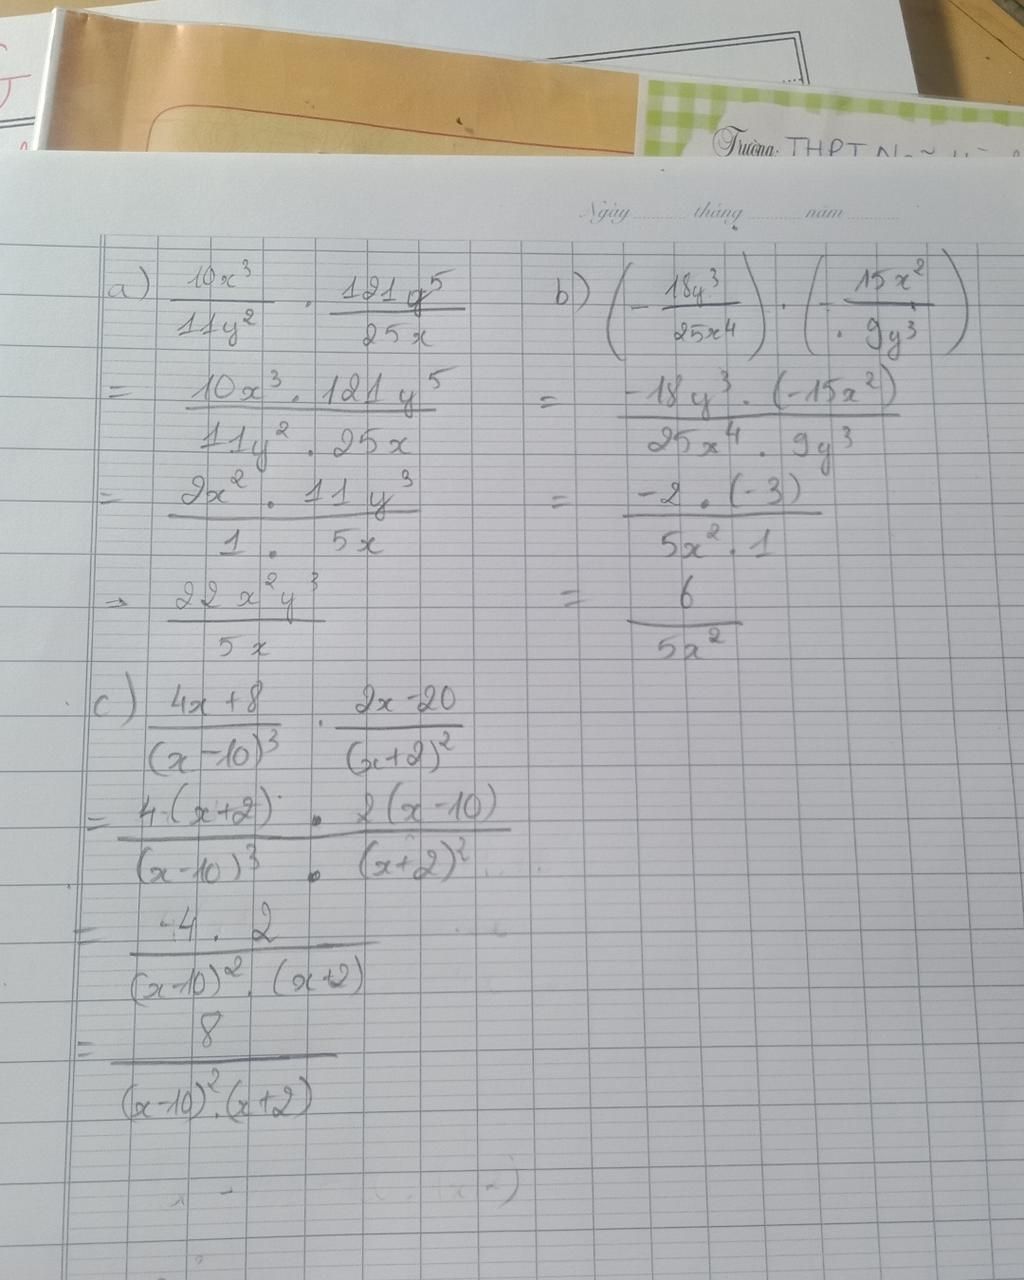 Trường: THPT
Ngày ........ tháng ........ năm ........
a) \frac{10x^3}{11y^2} . \frac{121y^5}{25x}
= \frac{10x^3 . 121y^5}{11y^2 . 25x}
= \frac{2x^2 . 11y^3}{1 . 5x}
→ \frac{22x^2y^3}{5x}
b) (-\frac{18y^3}{25x^4}) . (-\frac{15x^2}{9y^3})
= \frac{-18y^3 . (-15x^2)}{25x^4 . 9y^3}
= \frac{-2 . (-3)}{5x^2 . 1}
= \frac{6}{5x^2}
c) \frac{4x+8}{(x-10)^3} . \frac{2x-20}{(x+2)^2}
= \frac{4.(x+2) . 2(x-10)}{(x-10)^3 . (x+2)^2}
= \frac{4 . 2}{(x-10)^2 . (x+2)}
= \frac{8}{(x-10)^2 . (x+2)}